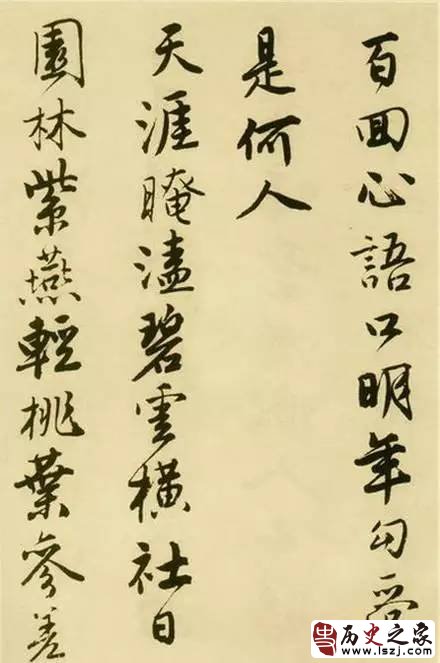 百回心語口明年勾
是何人
天涯晻溘碧雲橫社日
園林紫燕輕桃葉參差
史
历史之家
www.lszj.com